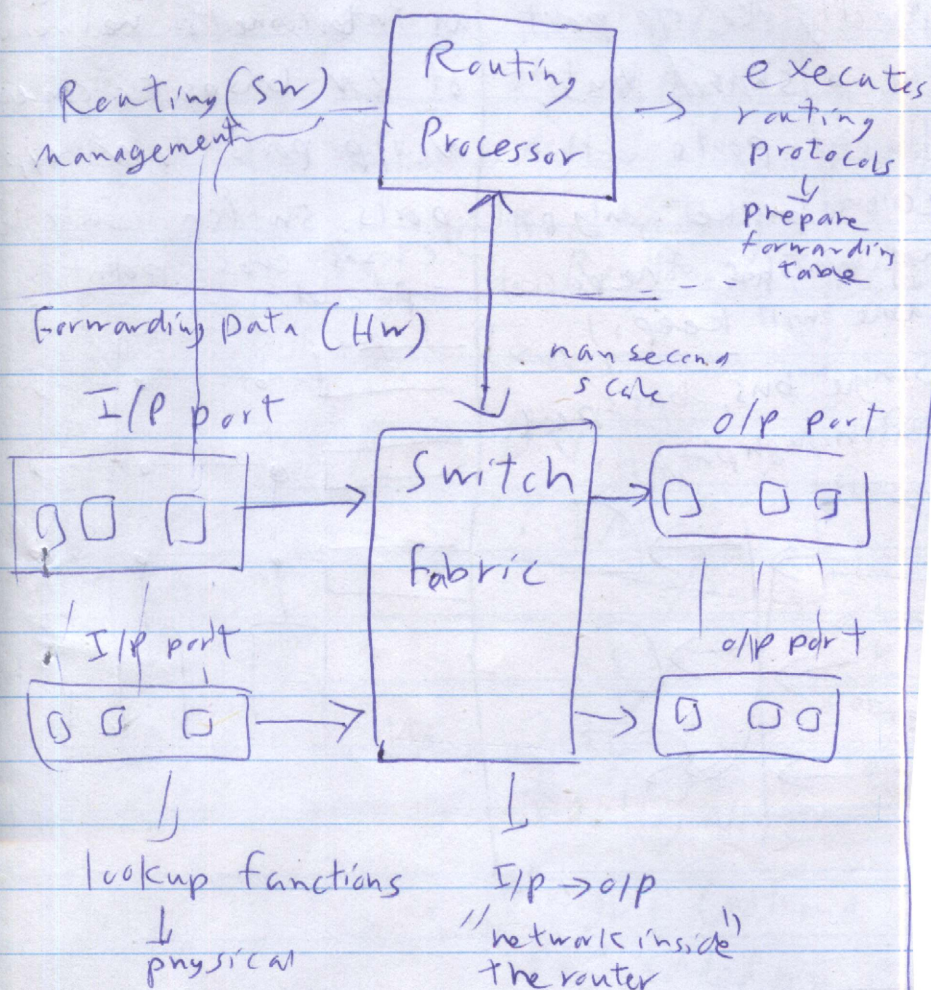 Routing (SW)
management
Routing
Processor
executes
routing
protocols
prepare
forwarding
table
Forwarding Data (HW)
nansecond
scale
I/P port
O/P port
Switch
Fabric
I/P port
o/p port
lookup functions
physical
I/p → o/p
"network inside"
the router